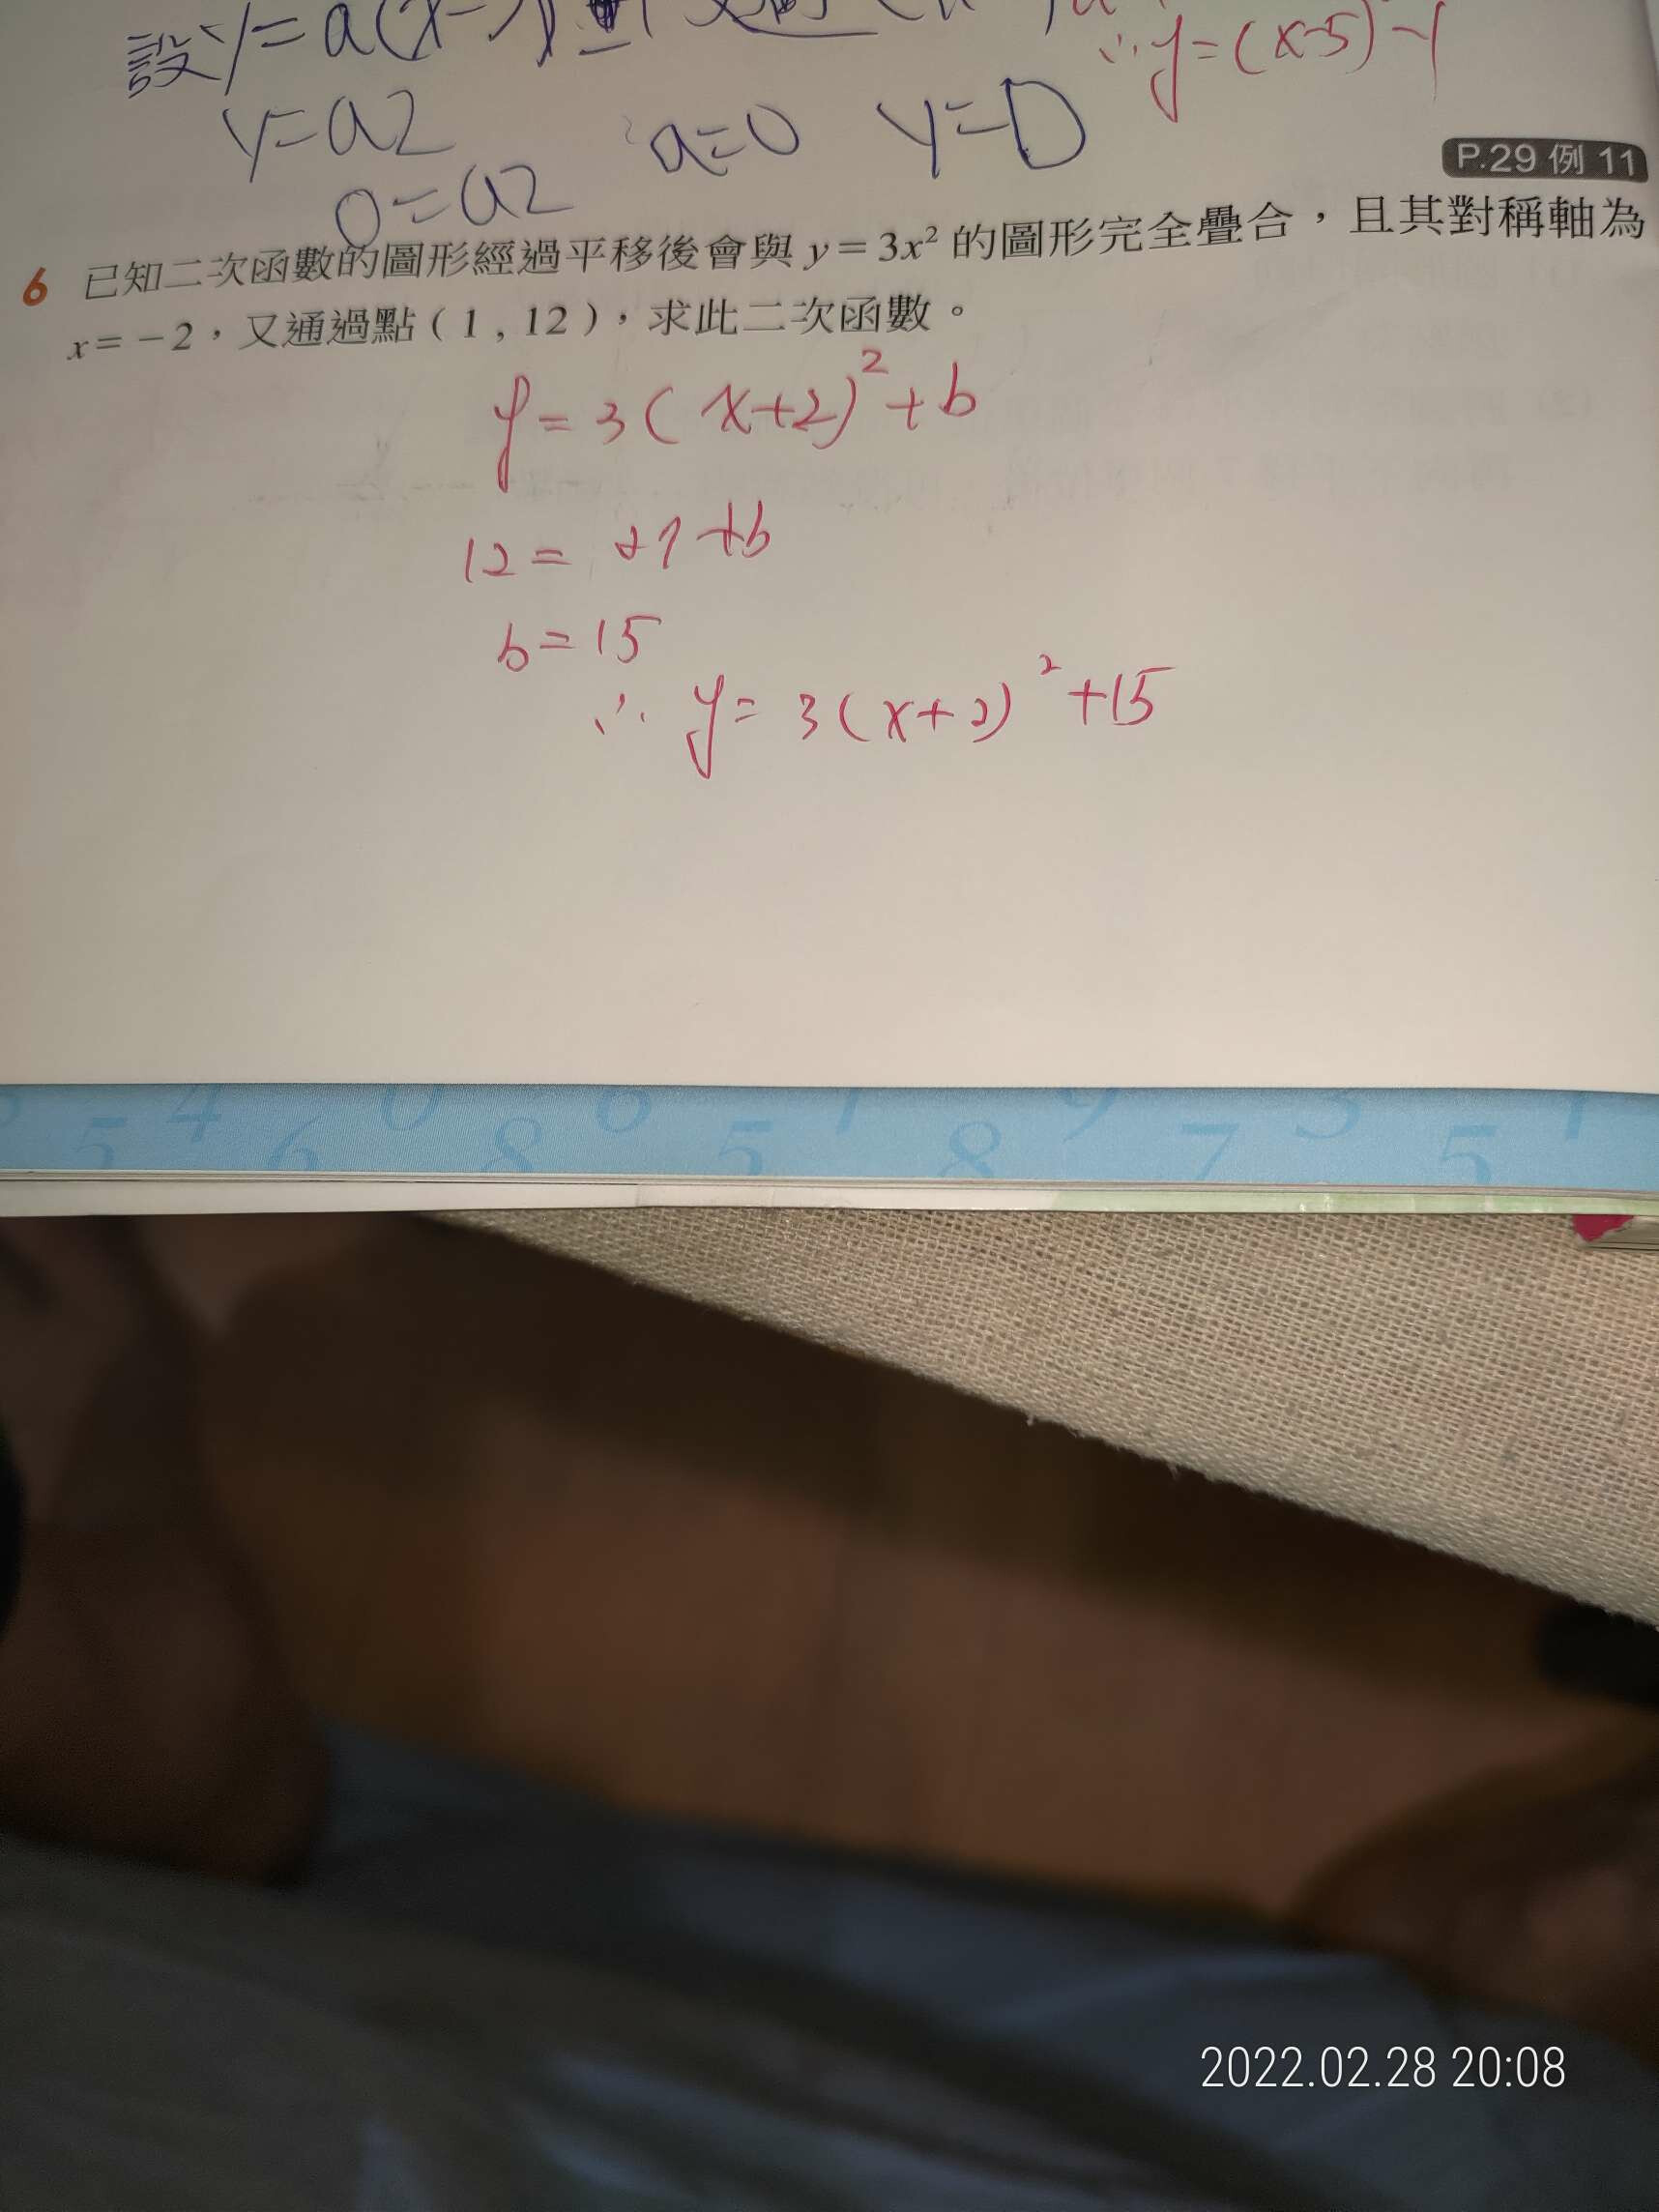 設y=a(x-
∴y=(x-5)²-1
y=a2
a=0 y=0
0=a2
P.29 例 11
6 已知二次函數的圖形經過平移後會與 y=3x² 的圖形完全疊合，且其對稱軸為
x=-2，又通過點(1,12)，求此二次函數。
y=3(x+2)²+b
12=27+b
b=15
∴ y=3(x+2)²+15
5 4 6 0 8 6 5 1 8 9 7 3 5 1
2022.02.28 20:08